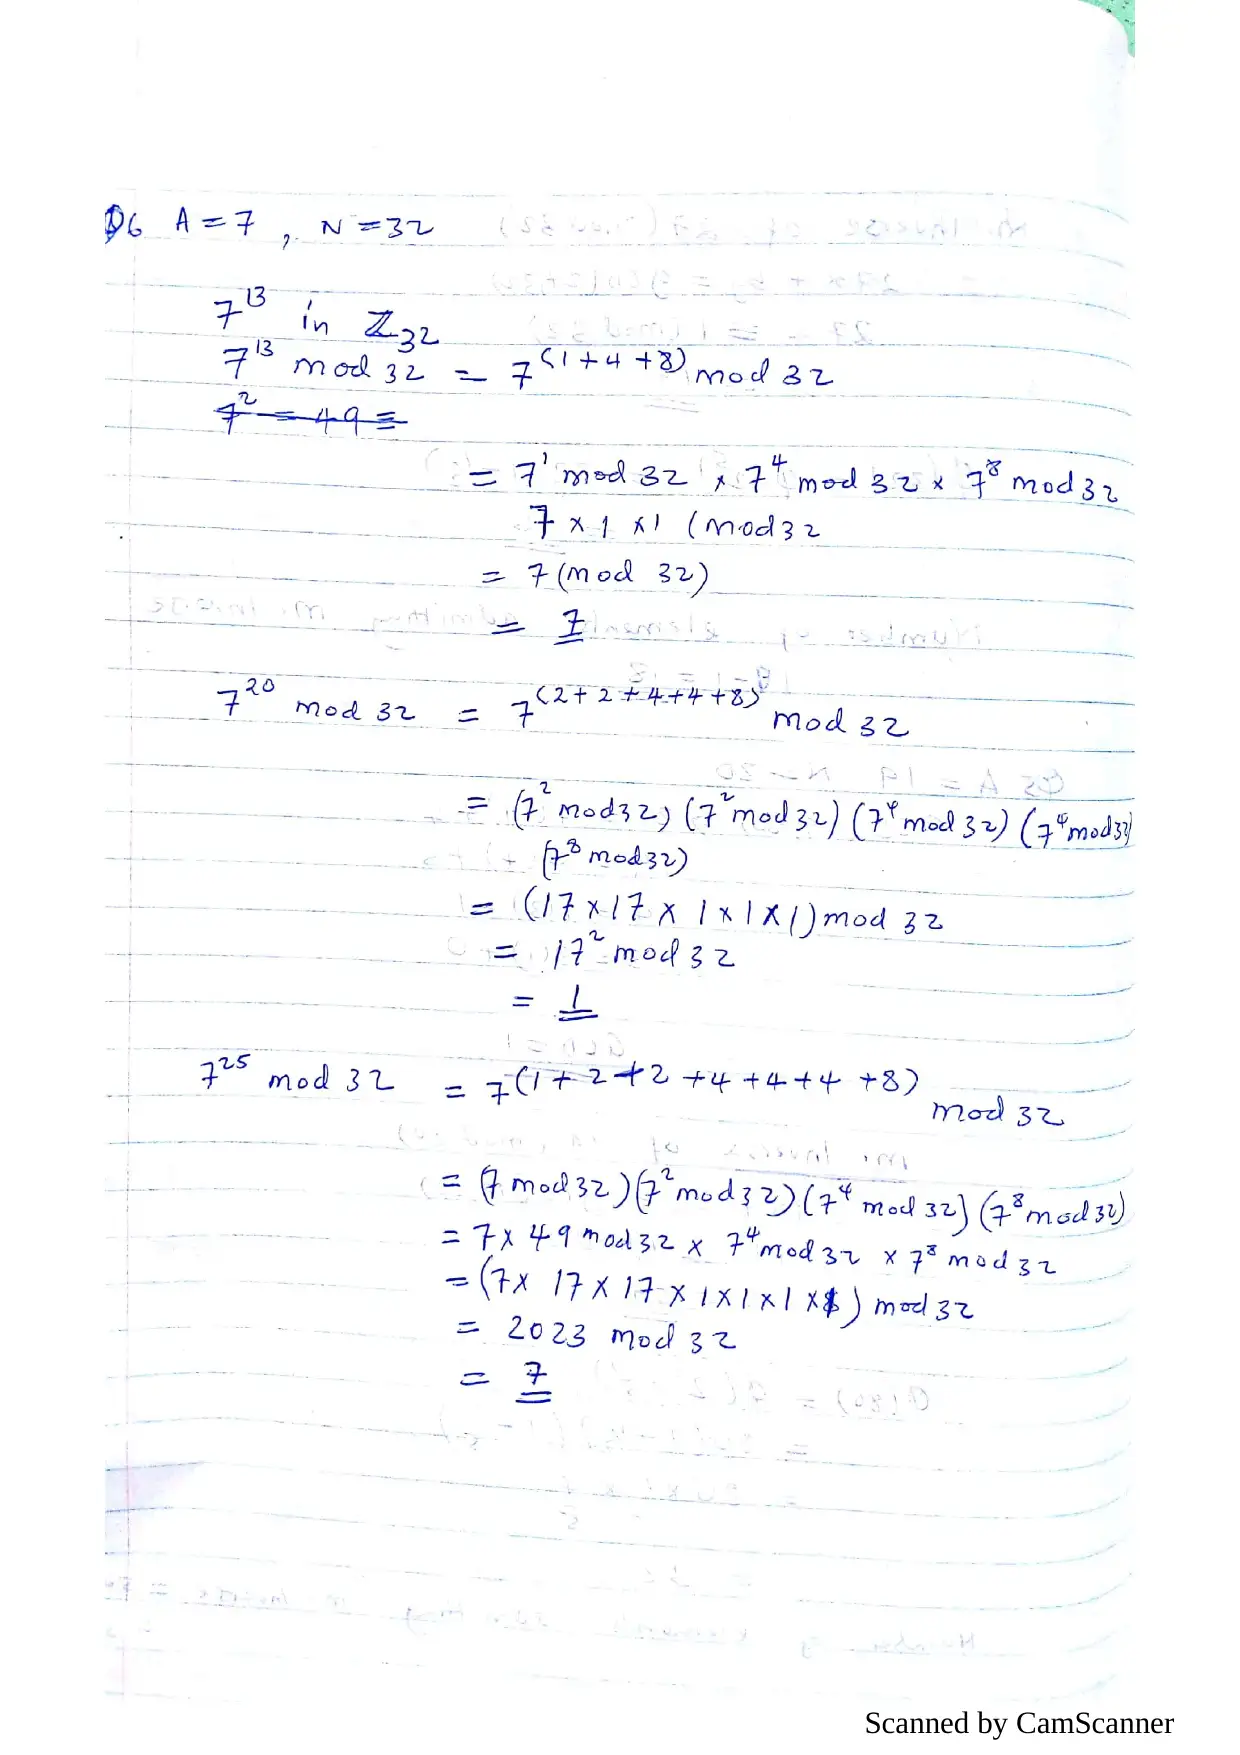 Q6 A = 7 , N = 32
7^13 in ℤ32
7^13 mod 32 = 7^(1+4+8) mod 32
7^2 = 49 ≡
= 7^1 mod 32 × 7^4 mod 32 × 7^8 mod 32
7 × 1 × 1 (mod 32
= 7 (mod 32)
= 7
7^20 mod 32 = 7^(2+2+4+4+8) mod 32
= (7^2 mod 32) (7^2 mod 32) (7^4 mod 32) (7^4 mod 32)
(7^8 mod 32)
= (17 × 17 × 1 × 1 × 1) mod 32
= 17^2 mod 32
= 1
7^25 mod 32 = 7^(1+2+2+4+4+4+8) mod 32
= (7 mod 32) (7^2 mod 32) (7^4 mod 32) (7^8 mod 32)
= 7 × 49 mod 32 × 7^4 mod 32 × 7^8 mod 32
= (7 × 17 × 17 × 1 × 1 × 1 × 1) mod 32
= 2023 mod 32
= 7
Scanned by CamScanner